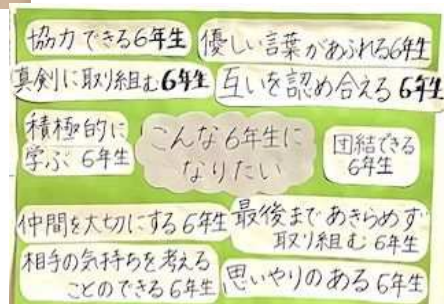 協力できる6年生
優しい言葉があふれる6年生
真剣に取り組む6年生
互いを認め合える6年生
積極的に
学ぶ6年生
こんな6年生に
なりたい
団結できる
6年生
仲間を大切にする6年生
最後まであきらめず
取り組む6年生
相手の気持ちを考える
ことのできる6年生
思いやりのある6年生